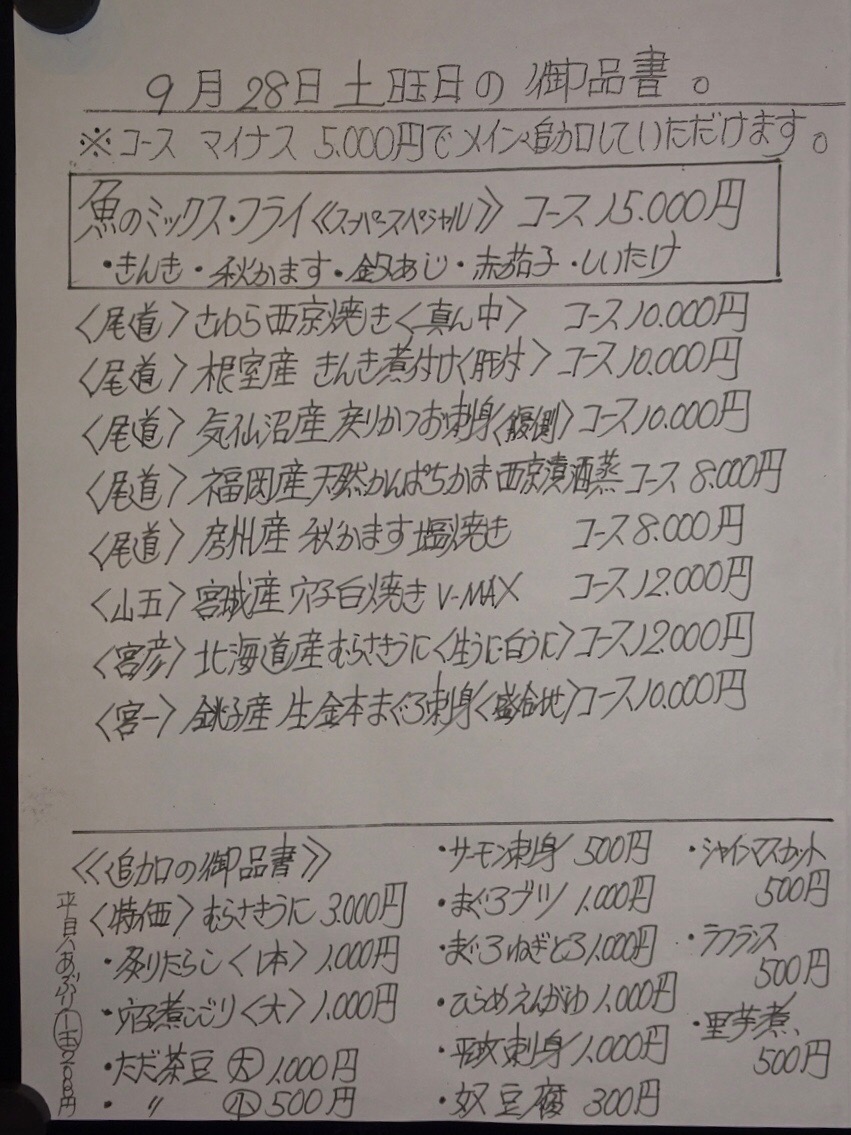 9月28日土曜日の御品書。
※コース マイナス 5.000円でメイン追加していただけます。
魚のミックス・フライ《スーパースペシャル》 コース 15.000円
・きんき・秋かます・釣あじ・赤茄子・しいたけ
〈尾道〉さわら西京焼き〈真ん中〉 コース10.000円
〈尾道〉根室産 きんき煮付け〈肝付〉コース10.000円
〈尾道〉気仙沼産 戻りかつお刺身〈腹側〉コース10.000円
〈尾道〉福岡産天然かんぱちかま西京漬酒蒸コース 8.000円
〈尾道〉房州産 秋かます塩焼き コース8.000円
〈山五〉宮城産 穴子白焼き V-MAX コース12.000円
〈宮彦〉北海道産むらさきうに〈生うに・白うに〉コース12.000円
〈宮一〉銚子産 生金本まぐろ刺身〈盛合せ〉コース10.000円
《追加の御品書》
〈特価〉むらさきうに 3.000円
・炙りたらこ〈1本〉1.000円
・穴子煮こごり〈大〉1.000円
・ただ茶豆 大 1.000円
・〃 小 500円
平貝あぶり 一玉 200円
・サーモン刺身 500円
・まぐろブツ 1.000円
・まぐろねぎとろ1.000円
・ひらめえんがわ1.000円
・平政刺身1.000円
・奴豆腐 300円
・シャインマスカット
500円
・ラフランス
500円
・里芋煮
500円